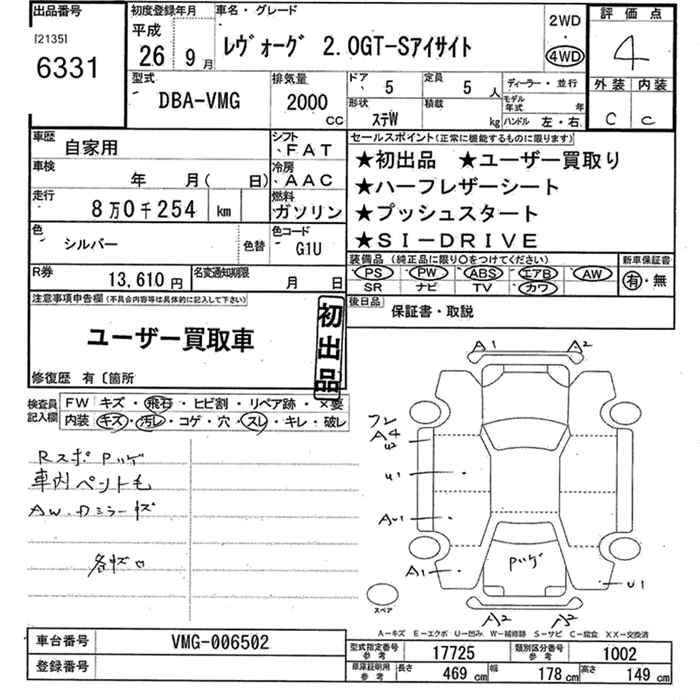 出品番号 初度登録年月 車名・グレード 2WD 評価点
[2135] 平成
6331 26年 9月 レヴォーグ 2.0GT-Sアイサイト 4WD 4
型式 排気量 ドア 5 定員 5人 ディーラー・並行 外装 内装
DBA-VMG 2000cc 形状 ステW 積載 kg モデル年式 年 C C
ハンドル 左・右
車歴 自家用 シフト FAT セールスポイント(正常に機能するものに限ります)
車検 年 月( 日) 冷房 AAC ★初出品 ★ユーザー買取り
走行 8万0千254 km 燃料 ガソリン ★ハーフレザーシート
★プッシュスタート
色 シルバー 色替 色コード G1U ★SI-DRIVE
R券 13,610円 名変通知期限 月 日 装備品(純正品に限り○をつけてください) 新車保証書
PS PW ABS エアB AW 有・無
SR ナビ TV カワ
注意事項申告欄(不具合内容等は具体的に記入して下さい) 後日品 保証書・取説
ユーザー買取車 初出品
修復歴 有〔箇所
検査員記入欄 FW キズ・飛石・ヒビ割・リペア跡・×要
内装 キズ・汚レ・コゲ・穴・スレ・キレ・破レ
Rスポ Pハゲ
車内ペント毛
AW.カミラーキズ
各キズ凹
A1 A2
フレ
A4
U1
AU1
A1 Pハゲ U1
スペア
A2
A-キズ E-エクボ U-凹み W-補修跡 S-サビ C-腐食 XX-交換済
車台番号 VMG-006502 型式指定番号 参考 17725 類別区分番号 参考 1002
登録番号 車庫証明用 参考 長さ 469cm 幅 178cm 高さ 149cm